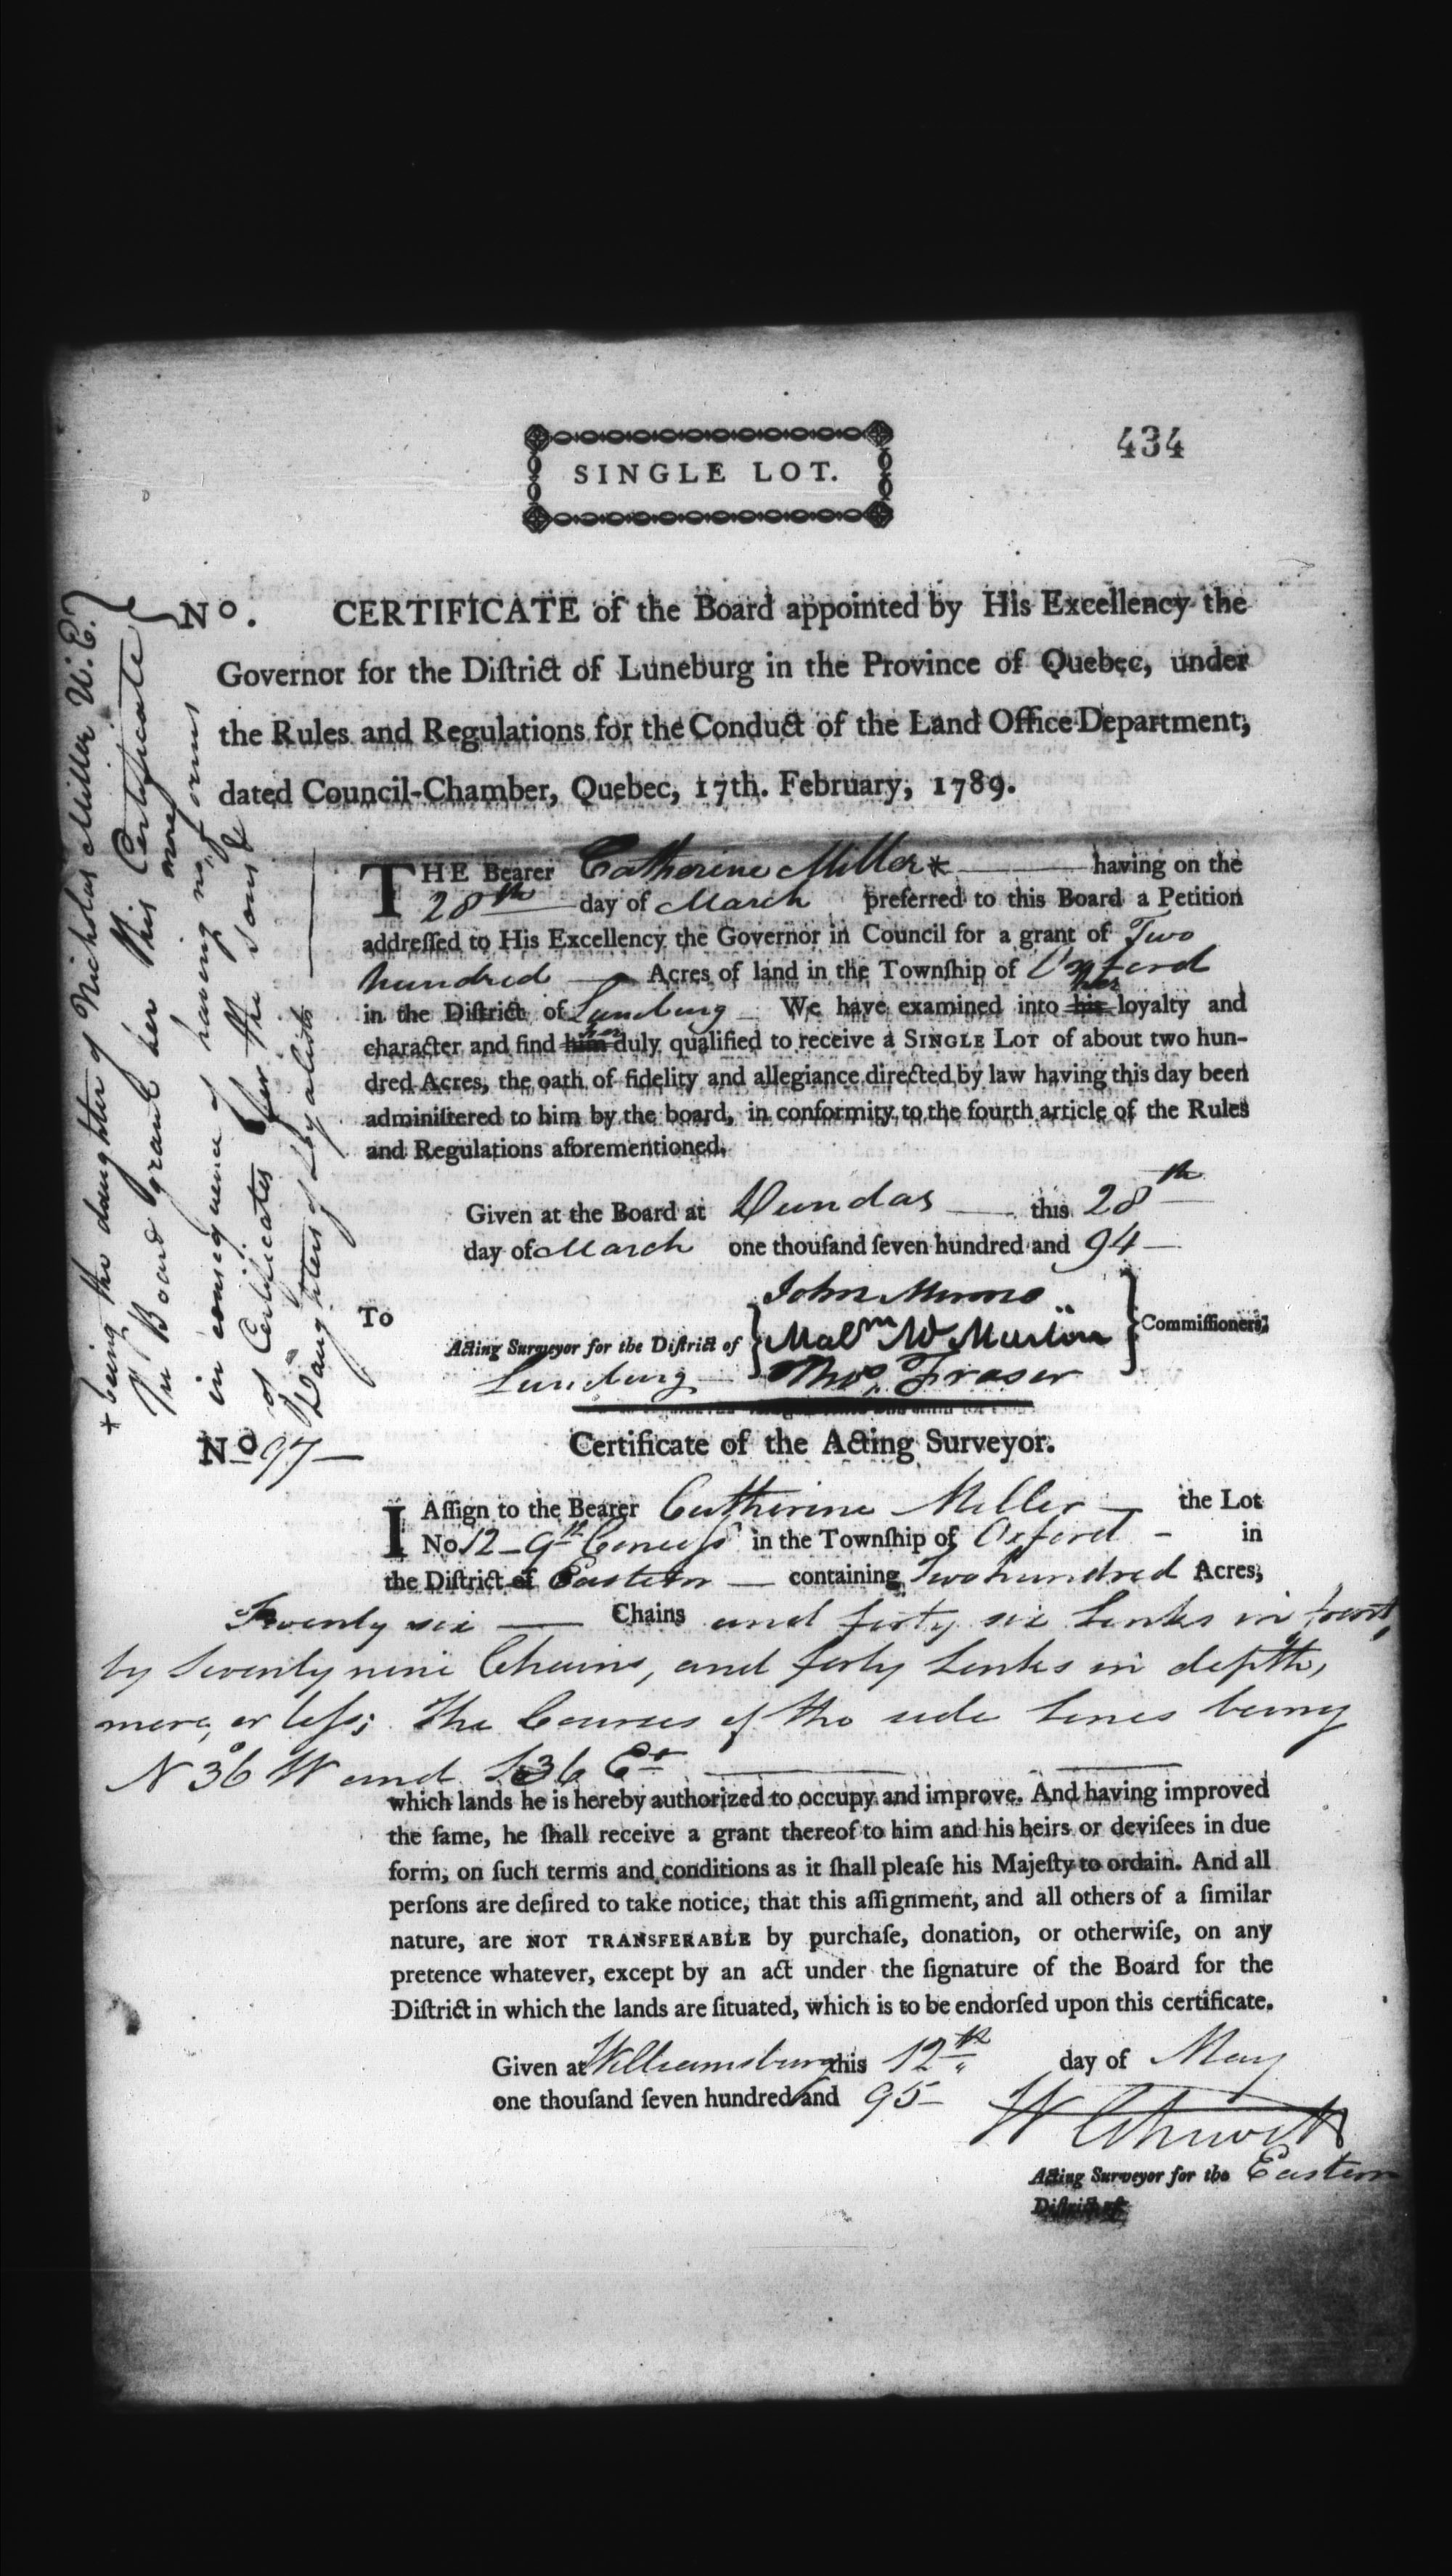 434
SINGLE LOT.
Nº. CERTIFICATE of the Board appointed by His Excellency the
Governor for the Diſtrict of Luneburg in the Province of Quebec, under
the Rules and Regulations for the Conduct of the Land Office Department,
dated Council-Chamber, Quebec, 17th. February, 1789.
THE Bearer Catherine Miller * having on the
28th day of March preferred to this Board a Petition
addreſſed to His Excellency the Governor in Council for a grant of Two
hundred Acres of land in the Townſhip of Oxford
in the Diſtrict of Lunburg We have examined into his her loyalty and
character and find him her duly qualified to receive a SINGLE LOT of about two hun-
dred Acres, the oath of fidelity and allegiance directed by law having this day been
adminiſtered to him by the board, in conformity to the fourth article of the Rules
and Regulations aforementioned.
Given at the Board at Dundas this 28th
day of March one thouſand ſeven hundred and 94
To
John Munro
Acting Surveyor for the Diſtrict of Malm Mc Martin Commiſſioners;
Lunburg Thos. Fraser
+ being the daughter of Nicholas Miller U.E.
The Board grant her this Certificate
in consequence of having no more forms
of Certificates for the Sons &
Daughters of Loyalists
Nº 97 Certificate of the Acting Surveyor.
I Aſſign to the Bearer Catherine Miller the Lot
No. 12 - 9th Conceſs in the Townſhip of Oxford - in
the Diſtrict of Eastern containing Two hundred Acres,
Twenty six Chains and forty six Links in front,
by Seventy nine Chains, and forty Links in depth,
more, or leſs; The Courses of the side Lines being
N 36 W and S 36 Et.
which lands he is hereby authorized to occupy and improve. And having improved
the ſame, he ſhall receive a grant thereof to him and his heirs or deviſees in due
form, on ſuch terms and conditions as it ſhall pleaſe his Majeſty to ordain. And all
perſons are deſired to take notice, that this aſſignment, and all others of a ſimilar
nature, are NOT TRANSFERABLE by purchaſe, donation, or otherwiſe, on any
pretence whatever, except by an act under the ſignature of the Board for the
Diſtrict in which the lands are ſituated, which is to be endorſed upon this certificate.
Given at Williamsburg this 12th day of May
one thouſand ſeven hundred and 95
W Chewett
Acting Surveyor for the Eastern
Diſtrict of